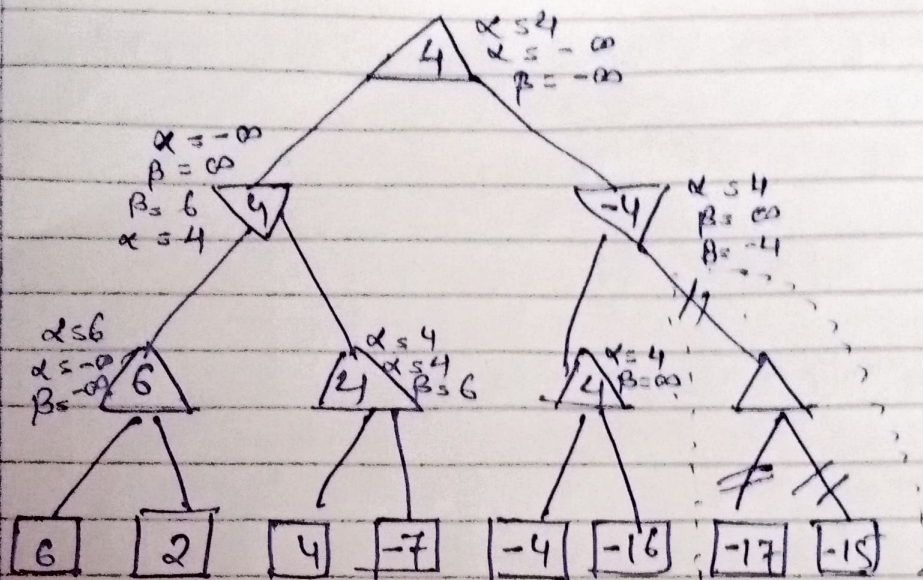 α = 4
4
α = - ∞
β = -∞
α = -∞
β = ∞
β = 6
α = 4
4
-4
α = 4
β = ∞
β = -4
α = 6
α = -∞
β = -∞
6
α = 4
α = 4
β = 6
4
α = 4
β = ∞
4
6 2 4 -7 -4 -16 -17 -15